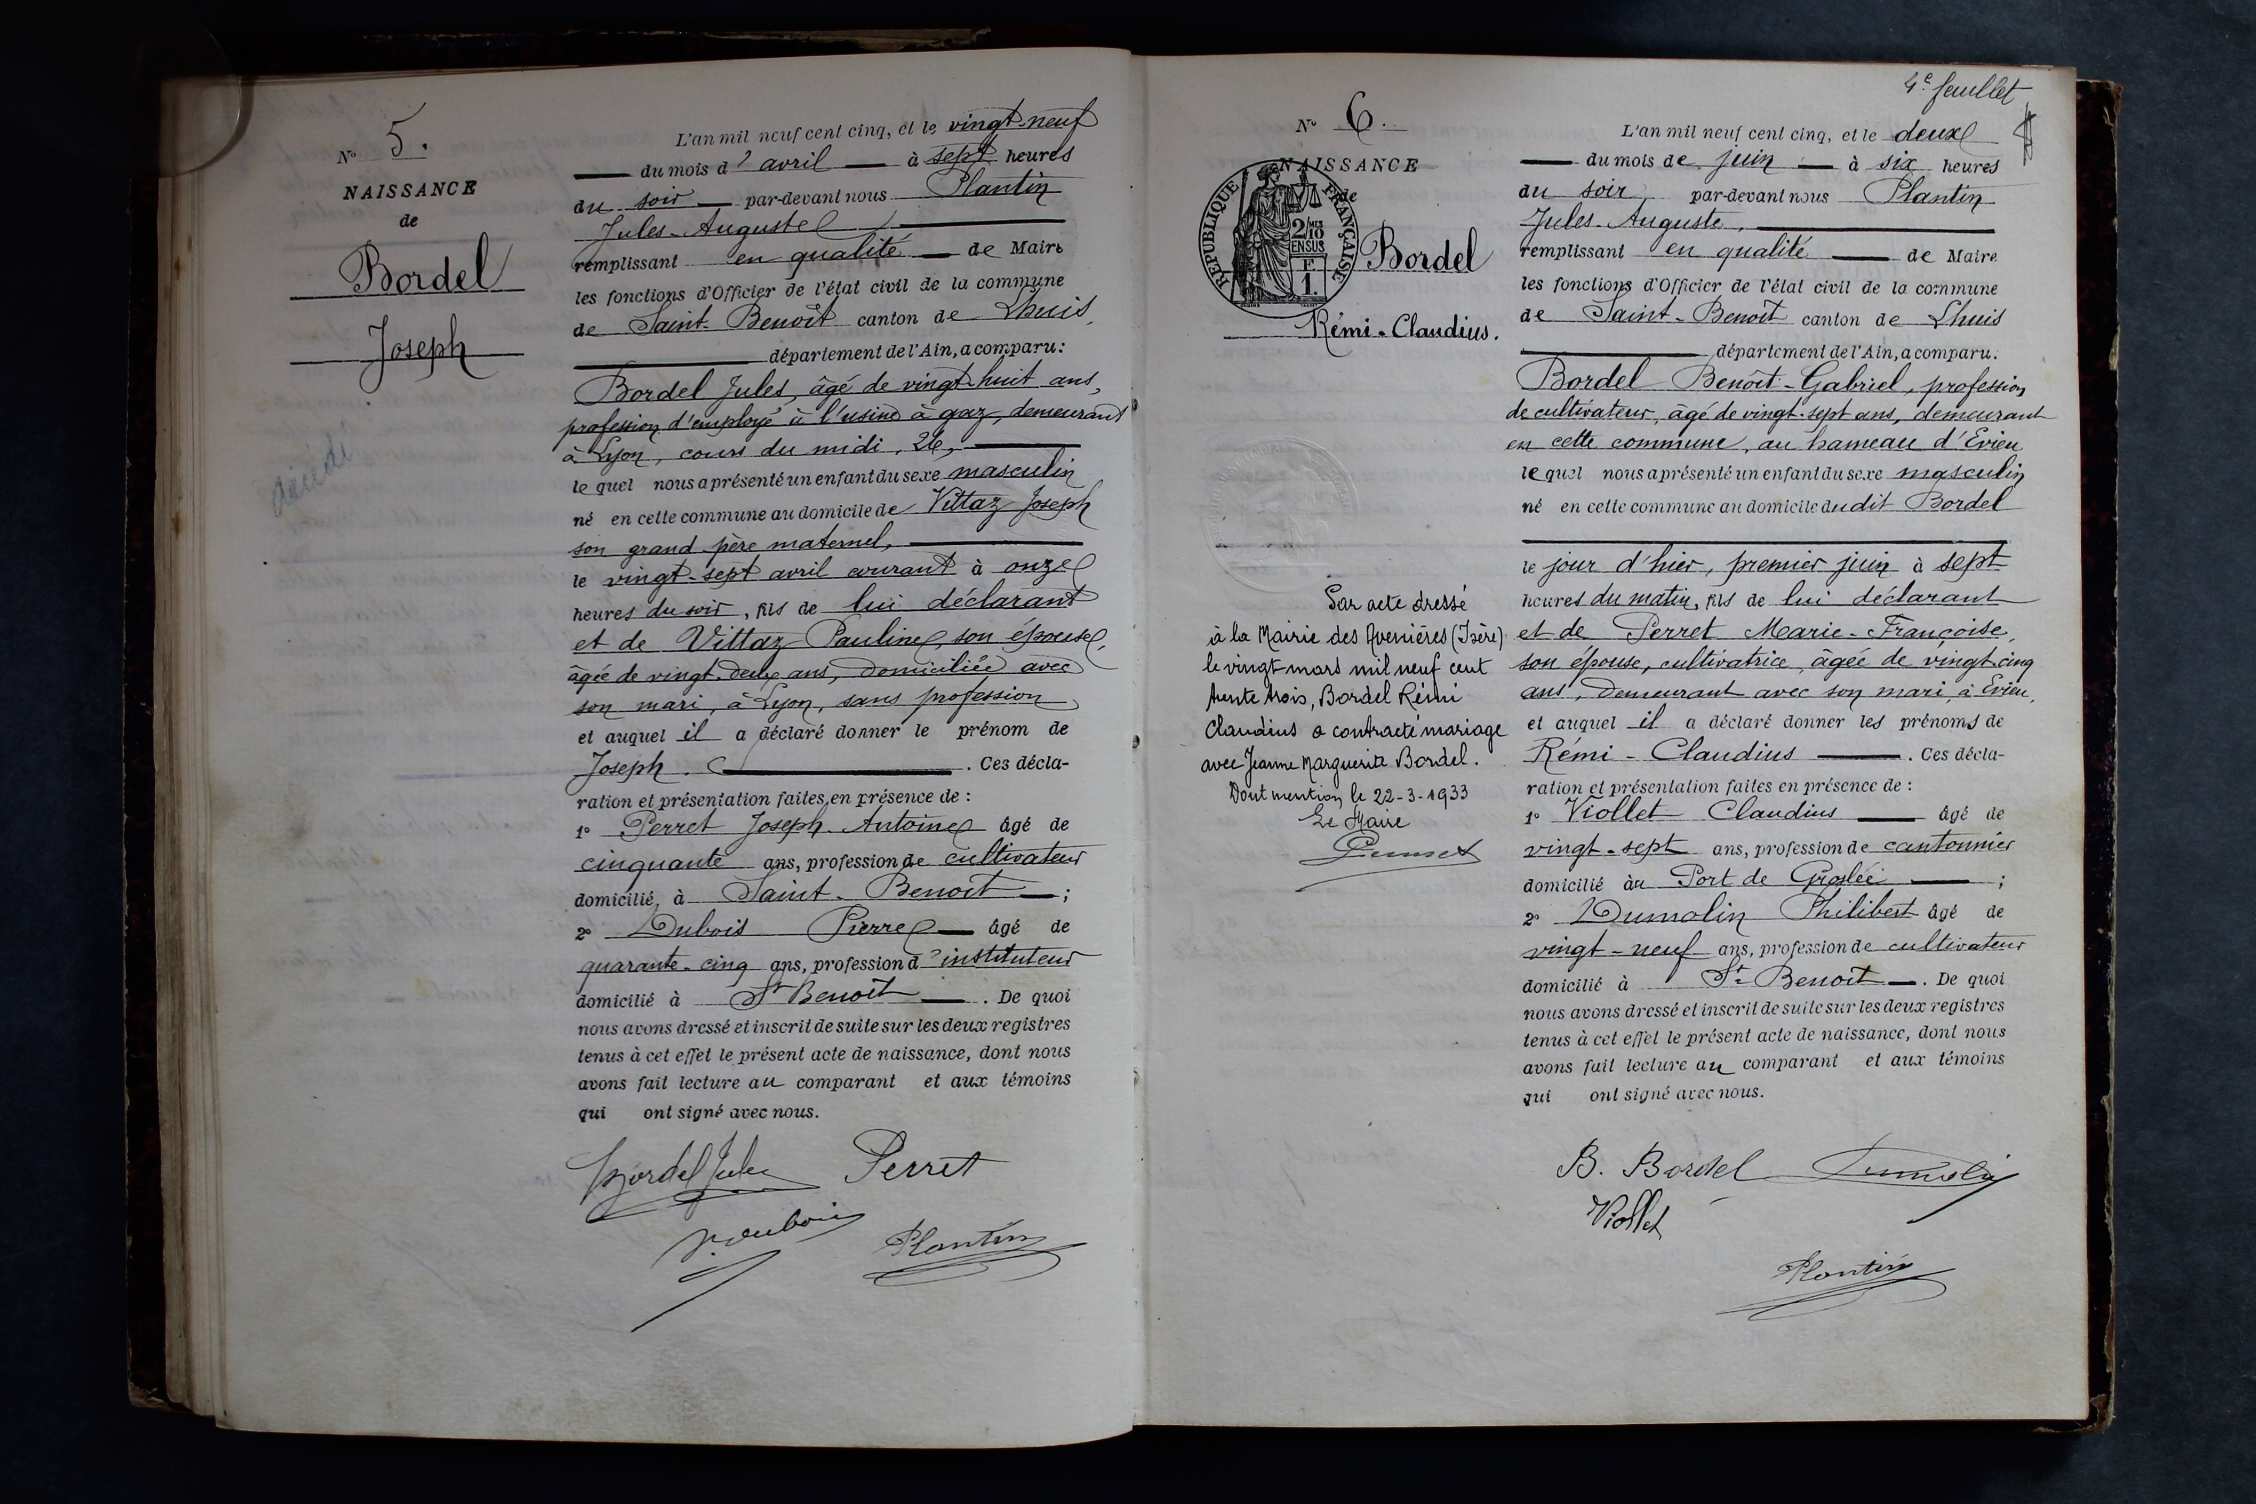 N° 5.
NAISSANCE
de
Bordel
Joseph
décédé
L'an mil neuf cent cinq, et le vingt-neuf
du mois d'avril à sept heures
du soir par-devant nous Plantin
Jules-Auguste
remplissant en qualité de Maire
les fonctions d'Officier de l'état civil de la commune
de Saint-Benoît canton de Lhuis,
département de l'Ain, a comparu:
Bordel Jules, âgé de vingt-huit ans,
profession d'employé à l'usine à gaz, demeurant
à Lyon, cours du midi, 26,
le quel nous a présenté un enfant du sexe masculin
né en cette commune au domicile de Vittaz Joseph
son grand-père maternel,
le vingt-sept avril courant à onze
heures du soir, fils de lui déclarant
et de Vittaz Pauline, son épouse,
âgée de vingt-deux ans, domiciliée avec
son mari, à Lyon, sans profession
et auquel il a déclaré donner le prénom de
Joseph. . Ces décla-
ration et présentation faites en présence de :
1° Perret Joseph-Antoine âgé de
cinquante ans, profession de cultivateur
domicilié à Saint-Benoît ;
2° Dubois Pierre âgé de
quarante-cinq ans, profession d'instituteur
domicilié à St Benoît . De quoi
nous avons dressé et inscrit de suite sur les deux registres
tenus à cet effet le présent acte de naissance, dont nous
avons fait lecture au comparant et aux témoins
qui ont signé avec nous.
Bordel Jules Perret
P. Dubois Plantin
4e feuillet
N° 6.
NAISSANCE
de
REPUBLIQUE FRANÇAISE
2/10 EN SUS
1 F.
Bordel
Rémi-Claudius.
Par acte dressé
à la Mairie des Avenières (Isère)
le vingt mars mil neuf cent
trente trois, Bordel Rémi
Claudius a contracté mariage
avec Jeanne Marguerite Bordel.
Dont mention le 22-3-1933
Le Maire
L'an mil neuf cent cinq, et le deux
du mois de juin à six heures
du soir par-devant nous Plantin
Jules-Auguste,
remplissant en qualité de Maire
les fonctions d'Officier de l'état civil de la commune
de Saint-Benoît canton de Lhuis
département de l'Ain, a comparu.
Bordel Benoît-Gabriel, profession
de cultivateur, âgé de vingt-sept ans, demeurant
en cette commune, au hameau d'Evieu
le quel nous a présenté un enfant du sexe masculin
né en cette commune au domicile dudit Bordel
le jour d'hier, premier juin à sept
heures du matin, fils de lui déclarant
et de Perret Marie-Françoise,
son épouse, cultivatrice, âgée de vingt-cinq
ans, demeurant avec son mari, à Evieu,
et auquel il a déclaré donner les prénoms de
Rémi-Claudius . Ces décla-
ration et présentation faites en présence de :
1° Viollet Claudius âgé de
vingt-sept ans, profession de cantonnier
domicilié au Port de Groslée ;
2° Dumolin Philibert âgé de
vingt-neuf ans, profession de cultivateur
domicilié à St-Benoît . De quoi
nous avons dressé et inscrit de suite sur les deux registres
tenus à cet effet le présent acte de naissance, dont nous
avons fait lecture au comparant et aux témoins
qui ont signé avec nous.
B. Bordel Dumolin
Viollet
Plantin